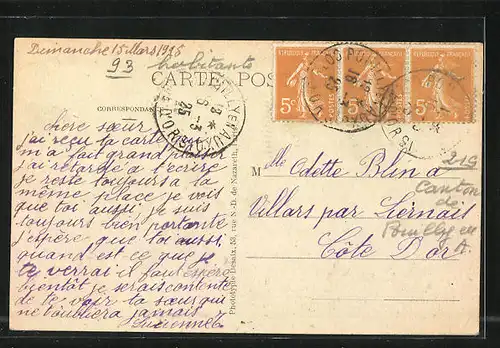 Dimanche 15 Mars 1925
93 habitants
CARTE POS
CORRESPONDANCE
chere sœur
j'ai reçu ta carte qui
m'a fait grand plaisir
j'ai retardé a t'écrire
je reste toujours a la
même place je vois
que toi aussi, je suis
toujours bien portante
j'espere que toi aussi,
quand est ce que je
te verrai il faut esperer
bientôt je serais contente
de te voir ta sœur qui
ne t'oubliera jamais
Lucienne
Phototypie Desaix, 53, rue N.-D. de Nazareth,
REPUBLIQUE FRANÇAISE
5c
5c
5c
Mlle Odette Blin a
Villars par Liernais
Côte D'or
219
Canton
de
Pouilly en
A.